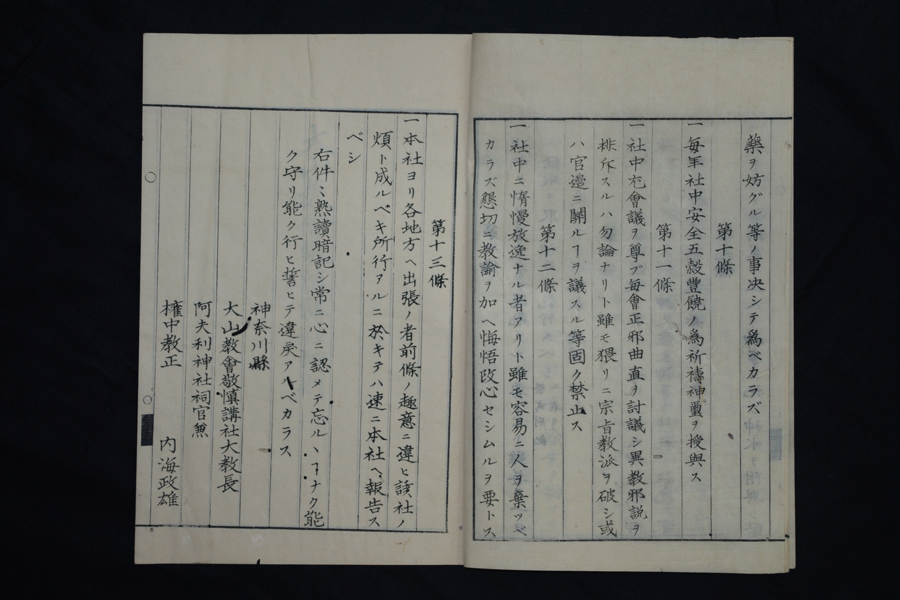 藥ヲ妨グル等ノ事决シテ爲ベカラズ
第十條
一毎年社中安全五穀豐饒ノ爲祈禱神璽ヲ授與ス
第十一條
一社中充會議ヲ尊ブ毎會正邪曲直ヲ討議シ異教邪説ヲ
排斥スルハ勿論ナリト雖モ猥リニ宗旨教派ヲ破シ或
ハ官邊ニ關ルヿヲ議スル等固ク禁止ス
第十二條
一社中ニ惰慢放逸ナル者アリト雖モ容易ニ人ヲ棄ツベ
カラズ懇切ニ教諭ヲ加ヘ悔悟改心セシムルヲ要トス
第十三條
一本社ヨリ各地方ヘ出張ノ者前條ノ趣意ニ違ヒ該社ノ
煩ト成ルベキ所行アルニ於キテハ速ニ本社ヘ報告ス
ベシ
右件〻熟讀暗記シ常ニ心ニ認メテ忘ルヽヿナク能
ク守リ能ク行ヒ誓ヒテ違戻アルベカラス
神奈川縣
大山教會敬愼講社大教長
阿夫利神社祠官兼
權中教正 内海政雄